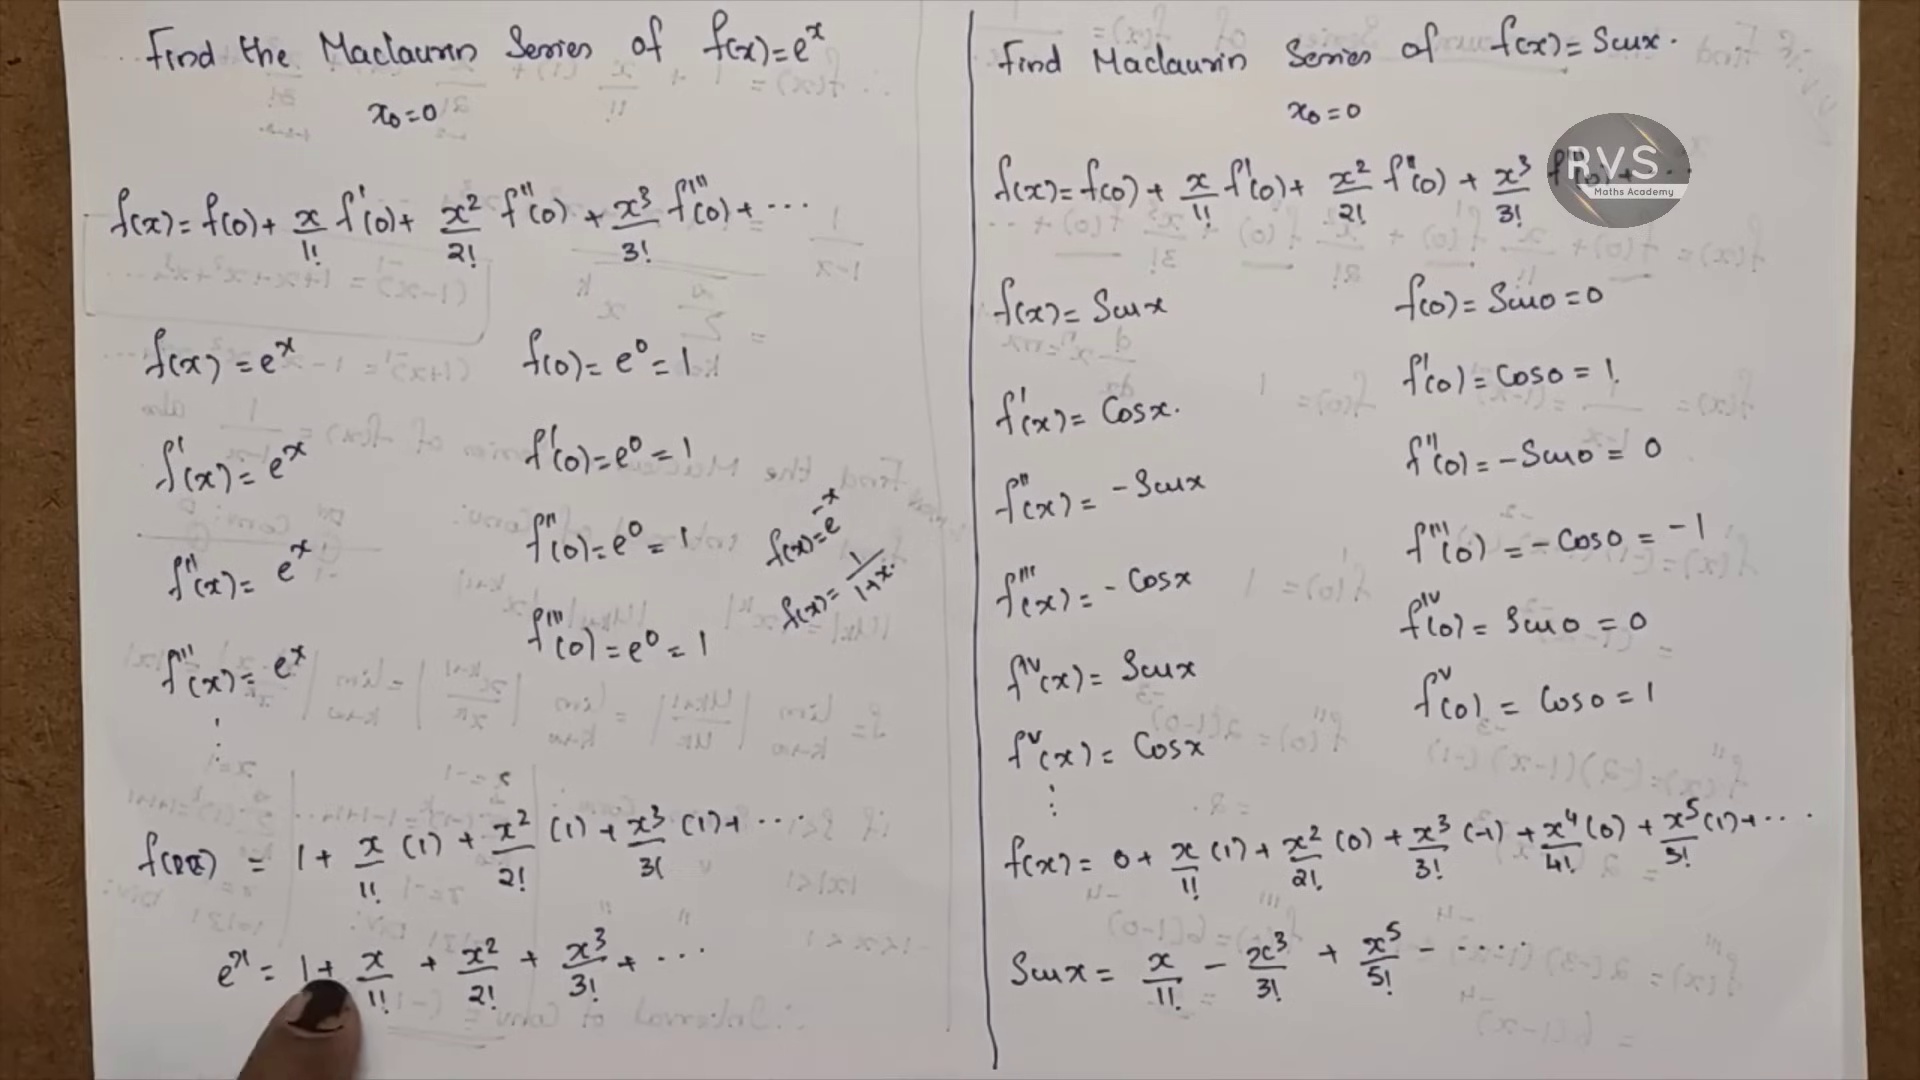 Find the Maclaurin Series of f(x)=e^x
x₀=0
f(x)=f(0)+ x/1! f'(0)+ x²/2! f''(0) + x³/3! f'''(0)+ ...
f(x) = e^x
f(0)= e⁰ = 1
f'(x)= e^x
f'(0)=e⁰ = 1
f''(x)= e^x
f''(0)=e⁰ = 1
f'''(x)= e^x
f'''(0)=e⁰ = 1
f(x)=e^-x
f(x)= 1/1+x.
⋮
= 1+ x/1! (1) + x²/2! (1) + x³/3! (1)+ ...
e^x = 1+ x/1! + x²/2! + x³/3! + ...
Find Maclaurin Series of f(x)= Sinx.
x₀=0
f(x)= f(0) + x/1! f'(0)+ x²/2! f''(0) + x³/3!
RVS
Maths Academy
f(x)= Sinx
f(0)= Sin0 = 0
f'(x)= Cosx.
f'(0)= Cos0 = 1
f''(x)= -Sinx
f''(0)= -Sin0 = 0
f'''(x)= - Cosx
f'''(0) = - Cos0 = -1
f^IV(x)= Sinx
f^IV(0)= Sin0 = 0
f^V(x)= Cosx
f^V(0) = Cos0 = 1
⋮
f(x)= 0+ x/1! (1)+ x²/2! (0) + x³/3! (-1) + x⁴/4! (0) + x⁵/5! (1)+ ...
Sinx = x/1! - x³/3! + x⁵/5! - ...